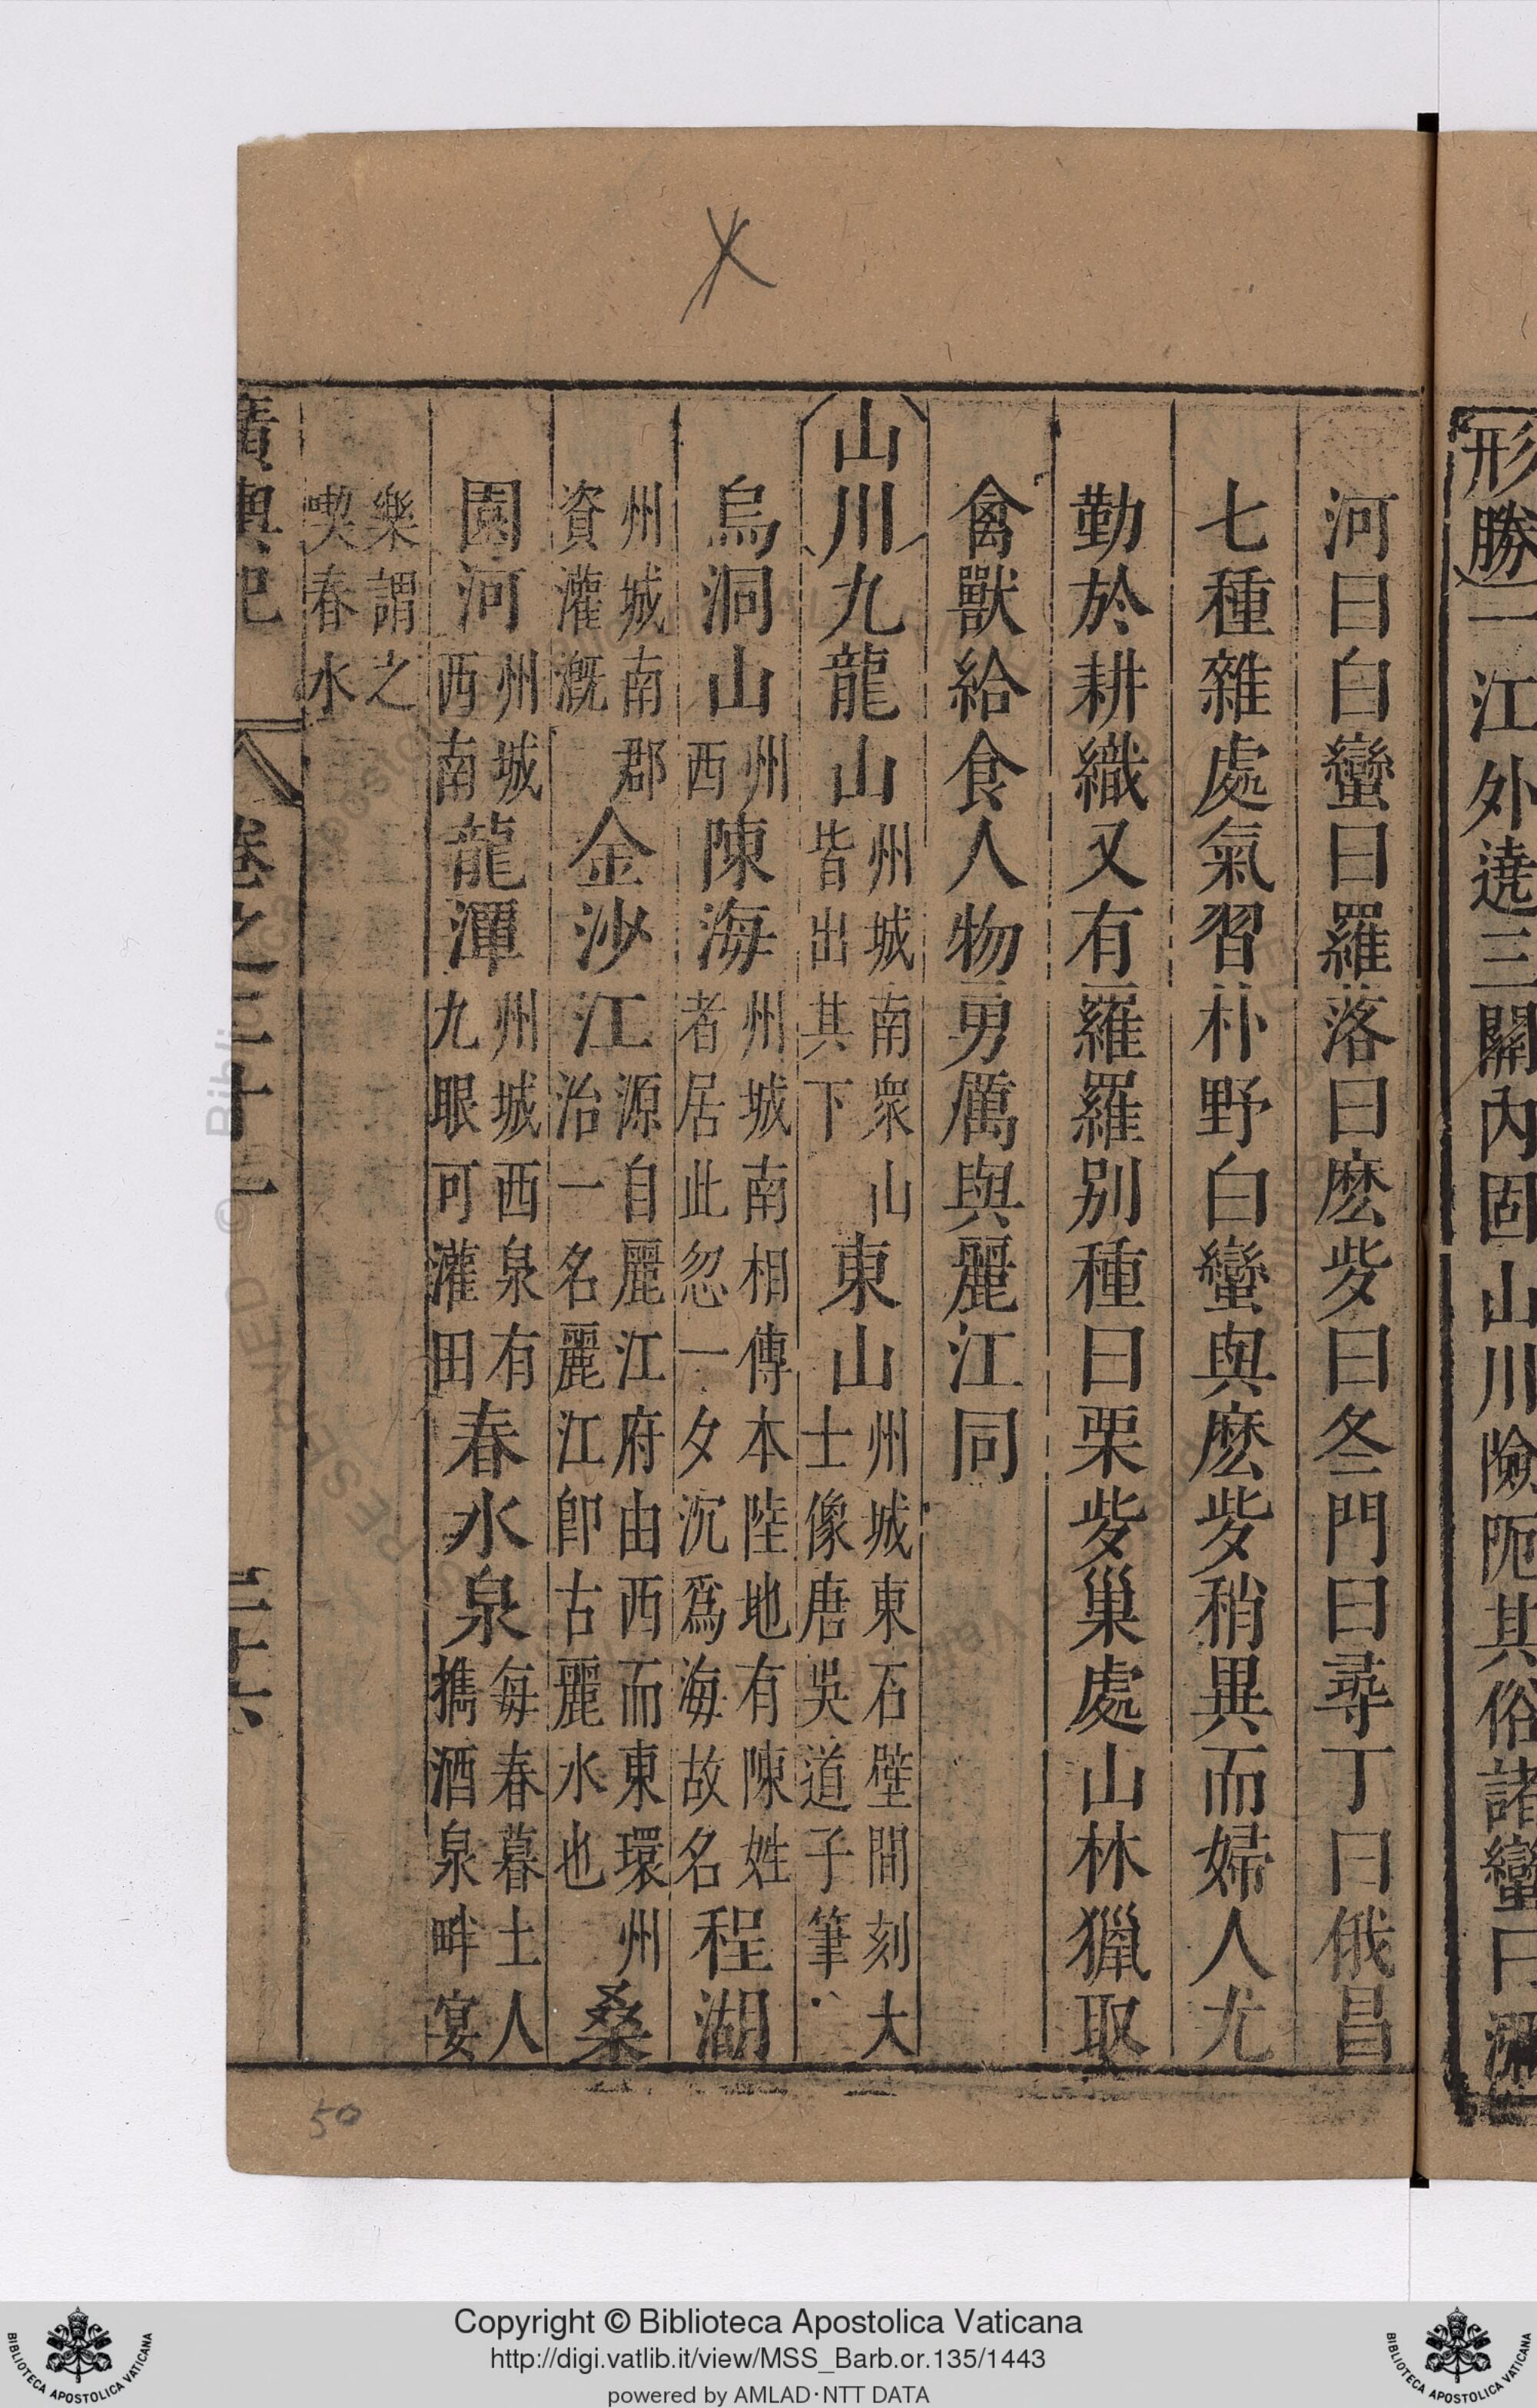 形勝一江外遶三關內固山川險阨其俗諸蠻曰
河曰白蠻曰羅落曰麽㱔曰冬門曰尋丁曰俄昌
七種雜處氣習朴野白蠻與麽㱔稍異而婦人尤
勤於耕織又有羅羅別種曰栗㱔巢處山林獵取
禽獸給食人物勇厲與麗江同
山川九龍山州城南衆山皆出其下東山州城東石壁間刻大士像唐吳道子筆
烏洞山州西陳海州城南相傳本陸地有陳姓者居此忽一夕沉爲海故名程湖
州城南郡資灌漑金沙江源自麗江府由西而東環州治一名麗江卽古麗水也桑
園河州城西南龍潭州城西泉有九眼可灌田春水泉每春暮土人擕酒泉畔宴
樂謂之喫春水
廣輿記 卷之二十一 二十六
50
Copyright © Biblioteca Apostolica Vaticana
http://digi.vatlib.it/view/MSS_Barb.or.135/1443
powered by AMLAD·NTT DATA
BIBLIOTECA APOSTOLICA VATICANA
BIBLIOTECA APOSTOLICA VATICANA